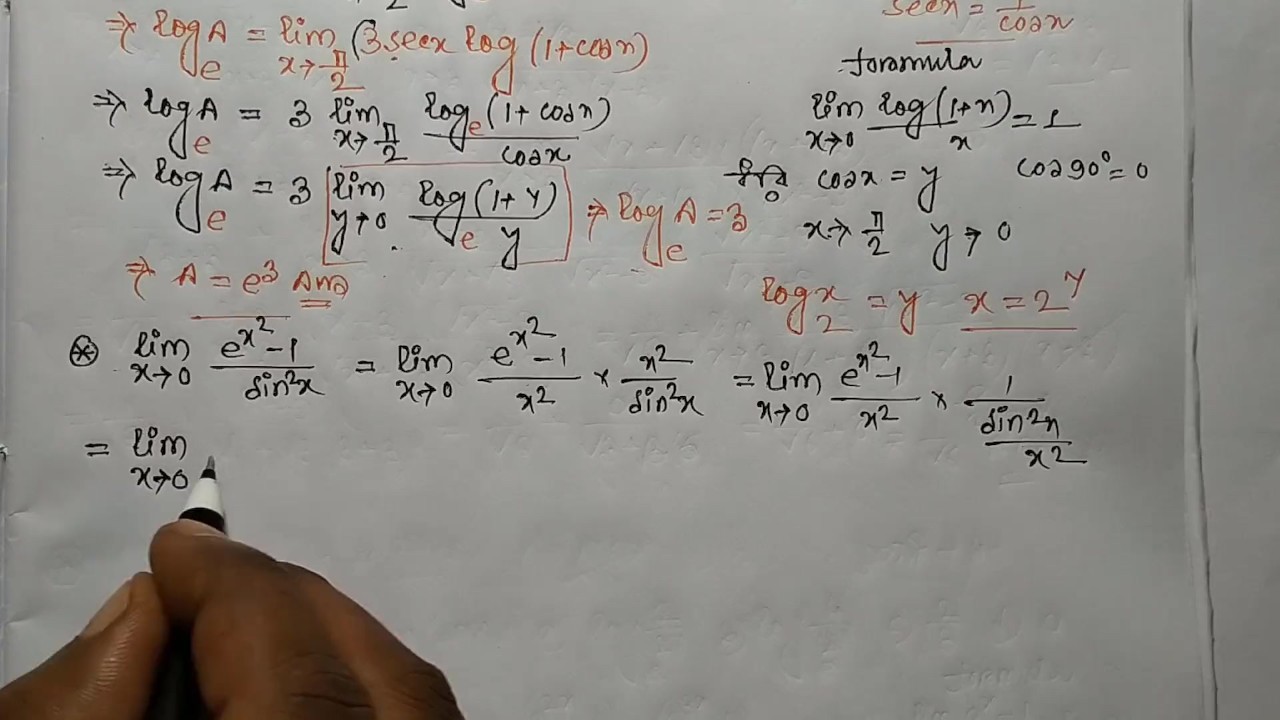 ⇒ log_e A = lim_{x→π/2} (3.secx log(1+cosx)
secx = 1/cosx
foramula
⇒ log_e A = 3 lim_{x→π/2} log_e(1+cosx)/cosx
lim_{x→0} log(1+x)/x = 1
⇒ log_e A = 3 lim_{y→0} log_e(1+y)/y ⇒ log_e A = 3
ধরি cosx = y cos90° = 0
x→π/2 y→0
⇒ A = e^3 Ans
log_2 x = y x = 2^y
⊛ lim_{x→0} (e^{x^2}-1)/sin^2x = lim_{x→0} (e^{x^2}-1)/x^2 × x^2/sin^2x = lim_{x→0} (e^{x^2}-1)/x^2 × 1/(sin^2x/x^2)
= lim_{x→0}